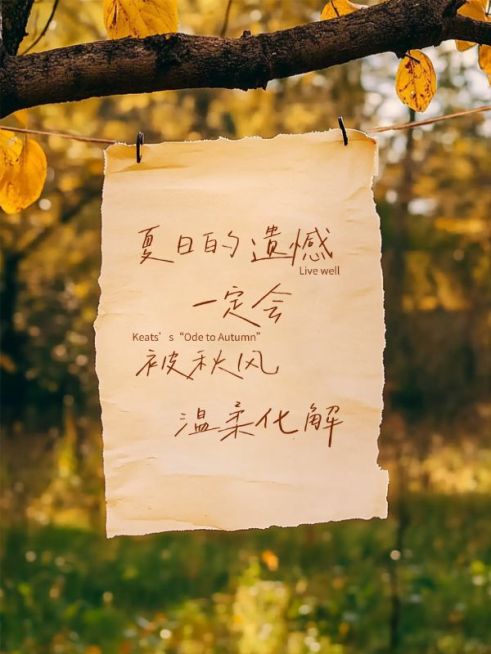 夏日的遗憾
Live well
一定会
Keats’s “Ode to Autumn”
被秋风
温柔化解